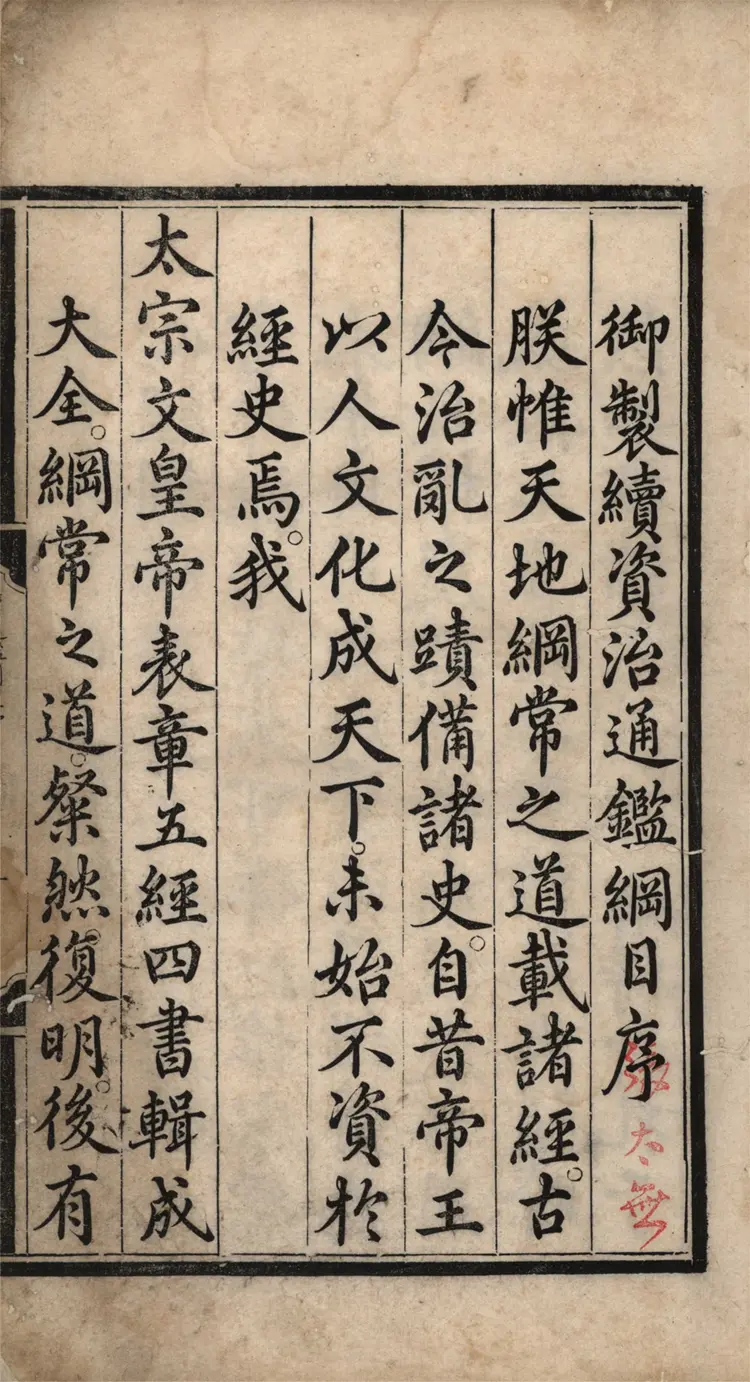 御製續資治通鑑綱目序
朕惟天地綱常之道載諸經。古
今治亂之蹟備諸史。自昔帝王
以人文化成天下。未始不資於
經史焉。我
太宗文皇帝表章五經四書輯成
大全。綱常之道。粲然復明。後有
太無